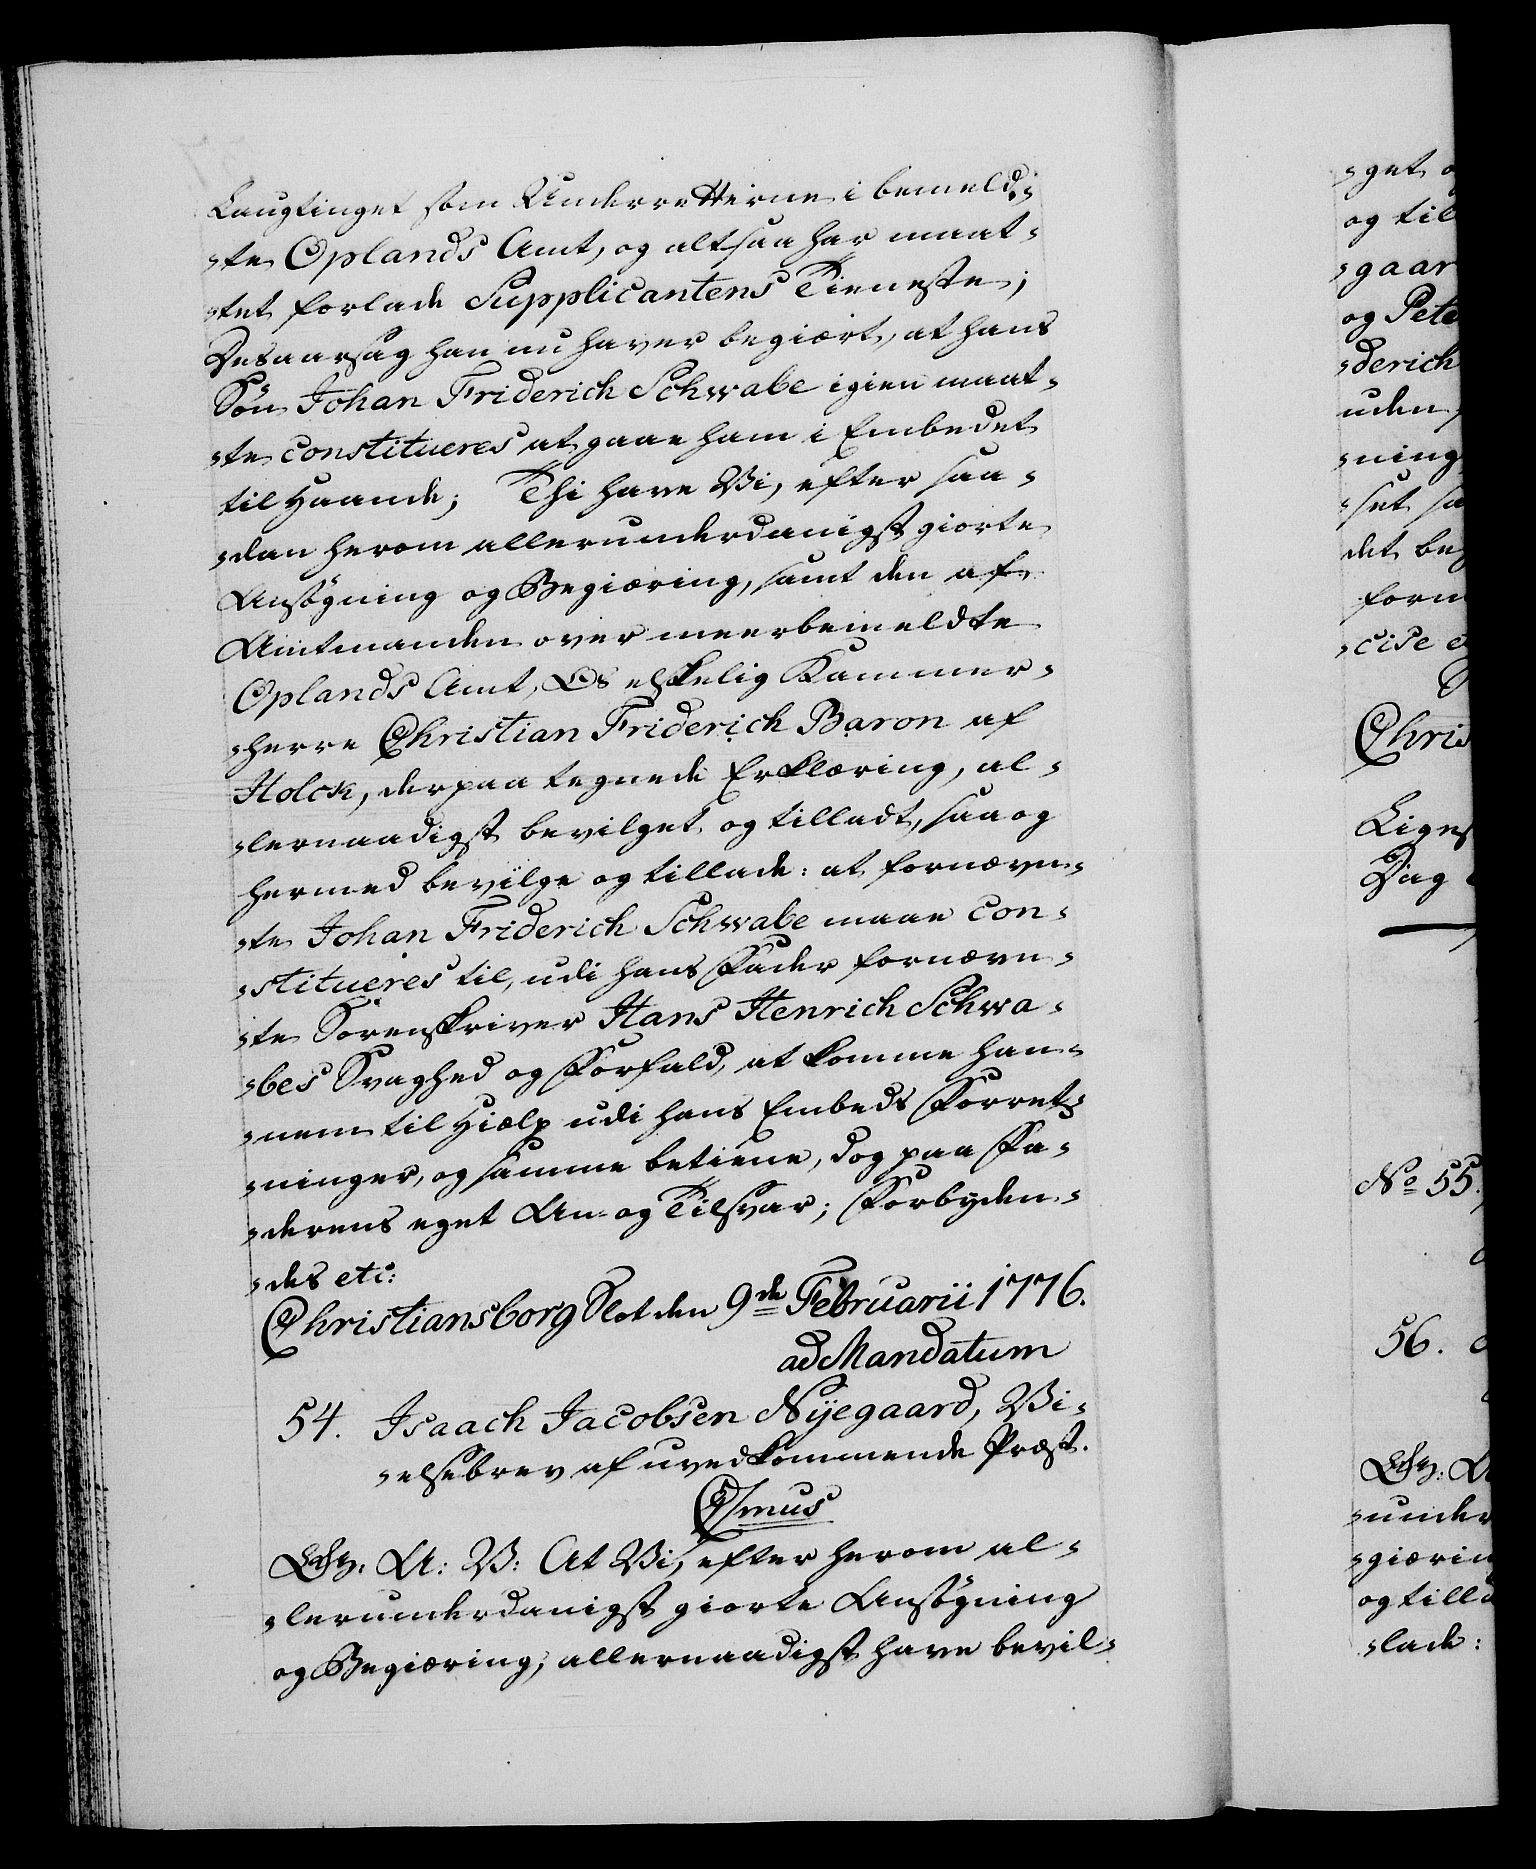 Laugtinget som Underretterne i bemeld-
-te Oplands Amt, og altsaa har maat-
-tet forlade Supplicantens Tieneste;
Desaarsag han nu haver begiært, at hans
Søn Johan Friderich Schwabe igien maat-
-te constitueres at gaae ham i Embedet
til Haande; Thi have Vi, efter saa-
-dan herom allerunderdanigst giorte
Ansøgning og Begiæring, samt den af
Amtmanden over meerbemeldte
Oplands Amt, Os elskelig Kammer-
-herre Christian Friderich Baron af
Holck, derpaa tegnede Erklæring, al-
-lernaadigst bevilget og tilladt, saa og
hermed bevilge og tillade: at fornævn-
-te Johan Friderich Schwabe maae con-
-stitueres til, udi hans Fader fornævn-
-te Sorenskriver Hans Henrich Schwa-
-bes Svaghed og Forfald, at komme han-
-nem til Hielp udi hans Embeds Forret-
-ninger, og samme betiene, dog paa Fa-
-derens eget An- og Tilsvar; Forbyden-
-des etc:
Christiansborg Slot den 9de Februarii 1776.
ad Mandatum
54. Isaach Jacobsen Nyegaard, Vi-
-elsebrev af uvedkommende Præst.
C7mus
G. A: V: At Vi, efter herom al-
-lerunderdanigst giorte Ansøgning
og Begiæring, allernaadigst have bevil-
-get
og til
-gaar
og Pete
-derich
uden
-ning
-set sa
det beg
forn
-cise
Chris
Liges
Dag
No 55.
56.
-under
-giærin
og tilla
-lade: